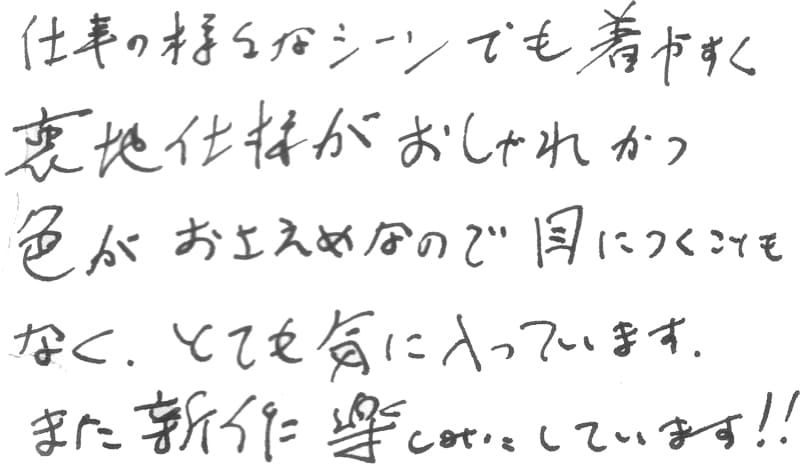 仕事の様々なシーンでも着やすく
裏地仕様がおしゃれかつ
色がおさえめなので目につくことも
なく、とても気に入っています。
また新作に楽しみにしています!!